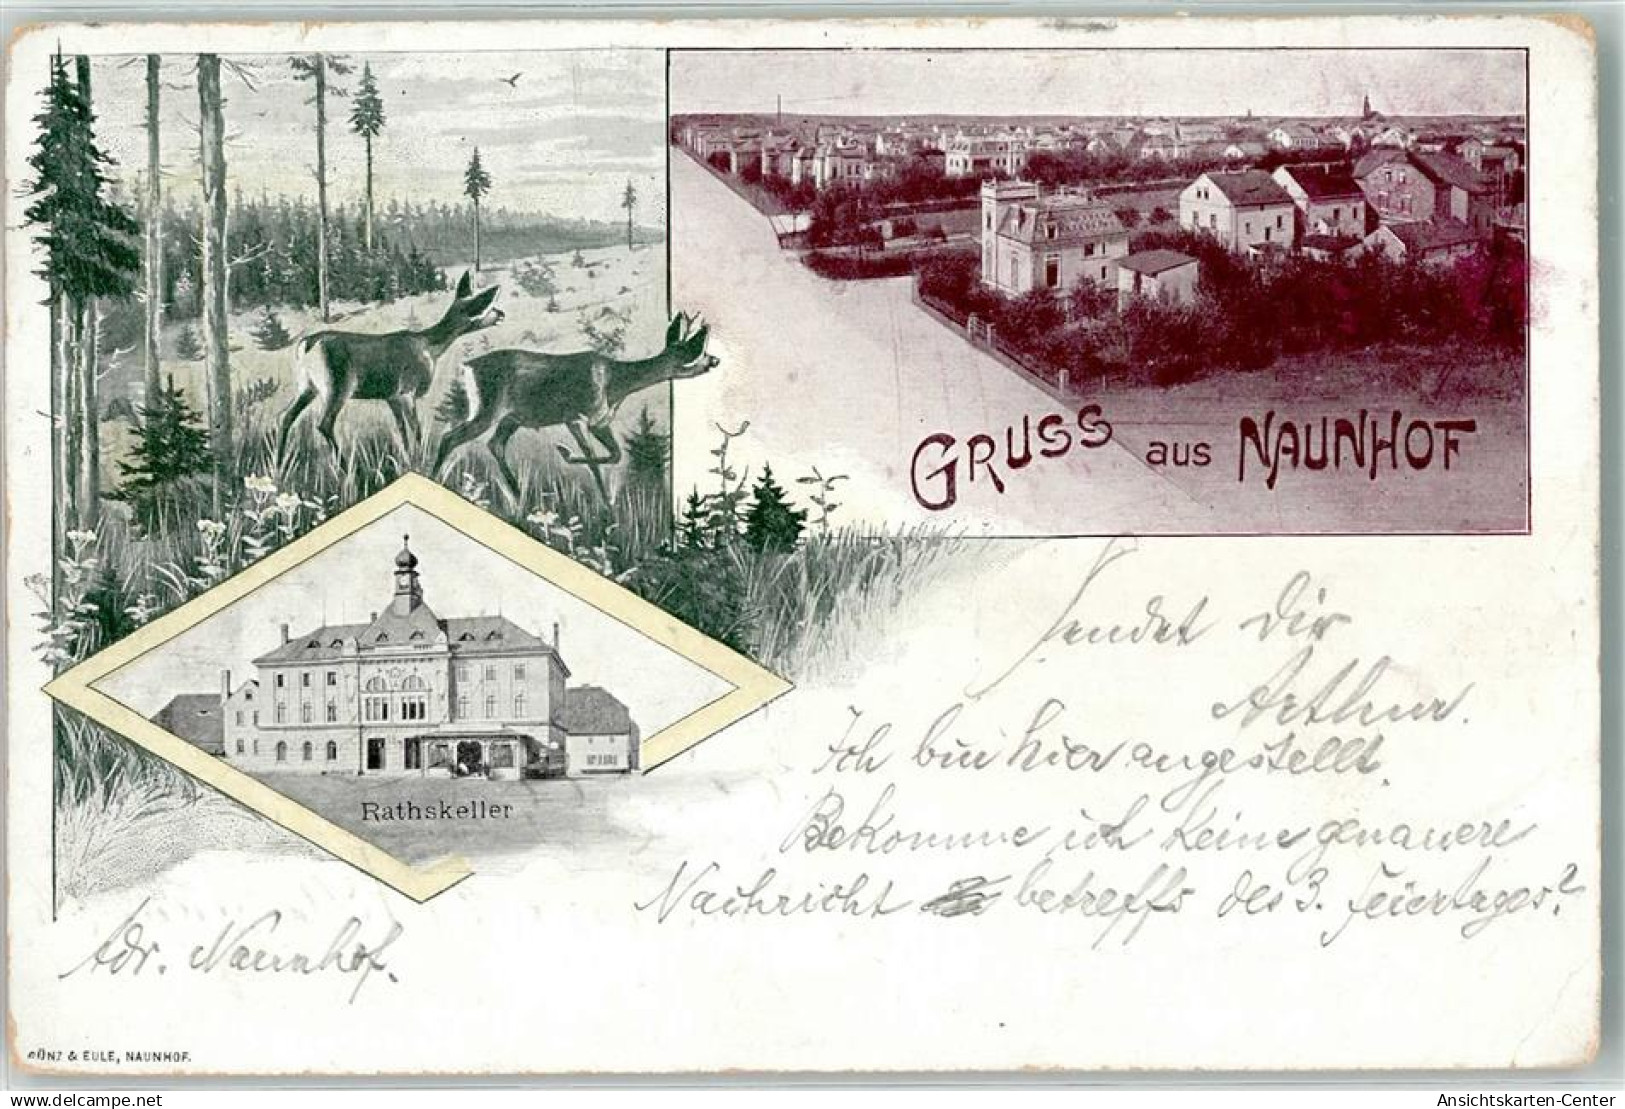 GRUSS aus NAUNHOF
sendet Dir
Arthur.
Ich bin hier angestellt.
Bekomme ich keine genauere
Nachricht betreffs des 3. Feiertages?
Rathskeller
Adr. Naunhof.
GÜNZ & EULE, NAUNHOF.
www.delcampe.net
Ansichtskarten-Center